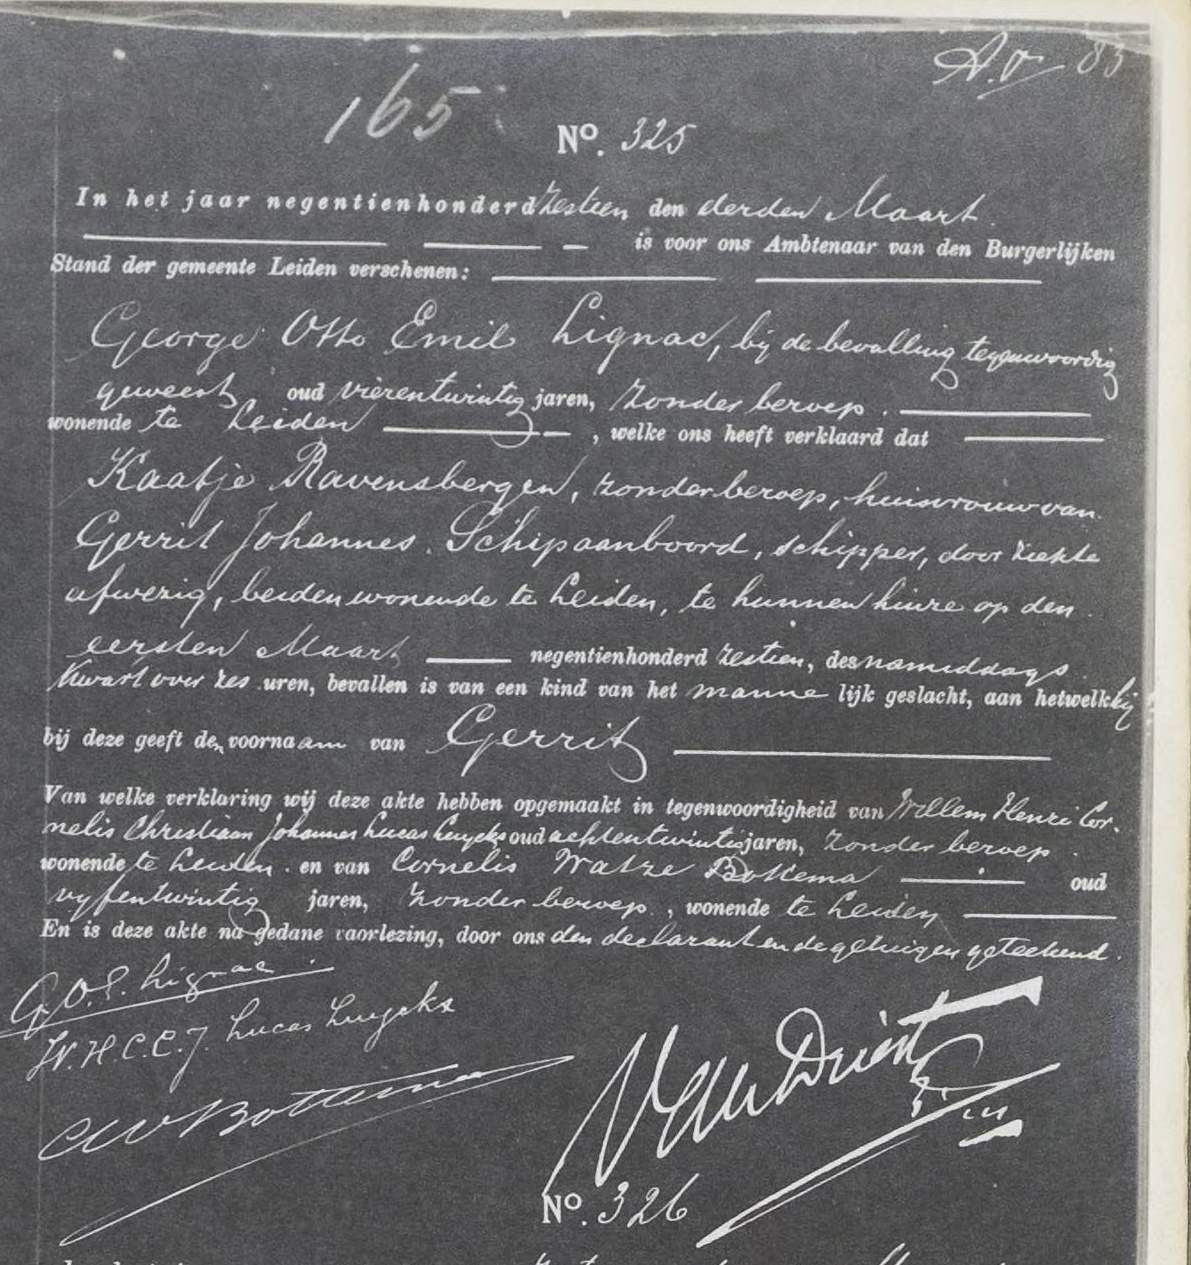 A.v. 83
165
No. 325
In het jaar negentienhonderd zestien den derden Maart.
is voor ons Ambtenaar van den Burgerlijken
Stand der gemeente Leiden verschenen:
George Otto Emil Lignac, bij de bevalling tegenwoordig
geweest oud vierentwintig jaren, zonder beroep.
wonende te Leiden , welke ons heeft verklaard dat
Kaatje Ravensbergen, zonder beroep, huisvrouw van
Gerrit Johannes Schipaanboord, schipper, door ziekte
afwezig, beiden wonende te Leiden, te hunnen huize op den
eersten Maart negentienhonderd zestien, des namiddags
kwart over zes uren, bevallen is van een kind van het mannelijk geslacht, aan hetwelk hij
bij deze geeft de voornaam van Gerrit
Van welke verklaring wij deze akte hebben opgemaakt in tegenwoordigheid van Willem Henri Cor-
nelis Christiaan Johannes Lucas Luycks oud achtentwintig jaren, zonder beroep
wonende te Leiden. en van Cornelis Watze Bottema oud
vyfentwintig jaren, zonder beroep, wonende te Leiden
En is deze akte na gedane voorlezing, door ons den declarant en de getuigen geteekend.
G.O.E. Lignac.
W.H.C.C.J. Lucas Luycks
CWBottema
van Driest
No. 326